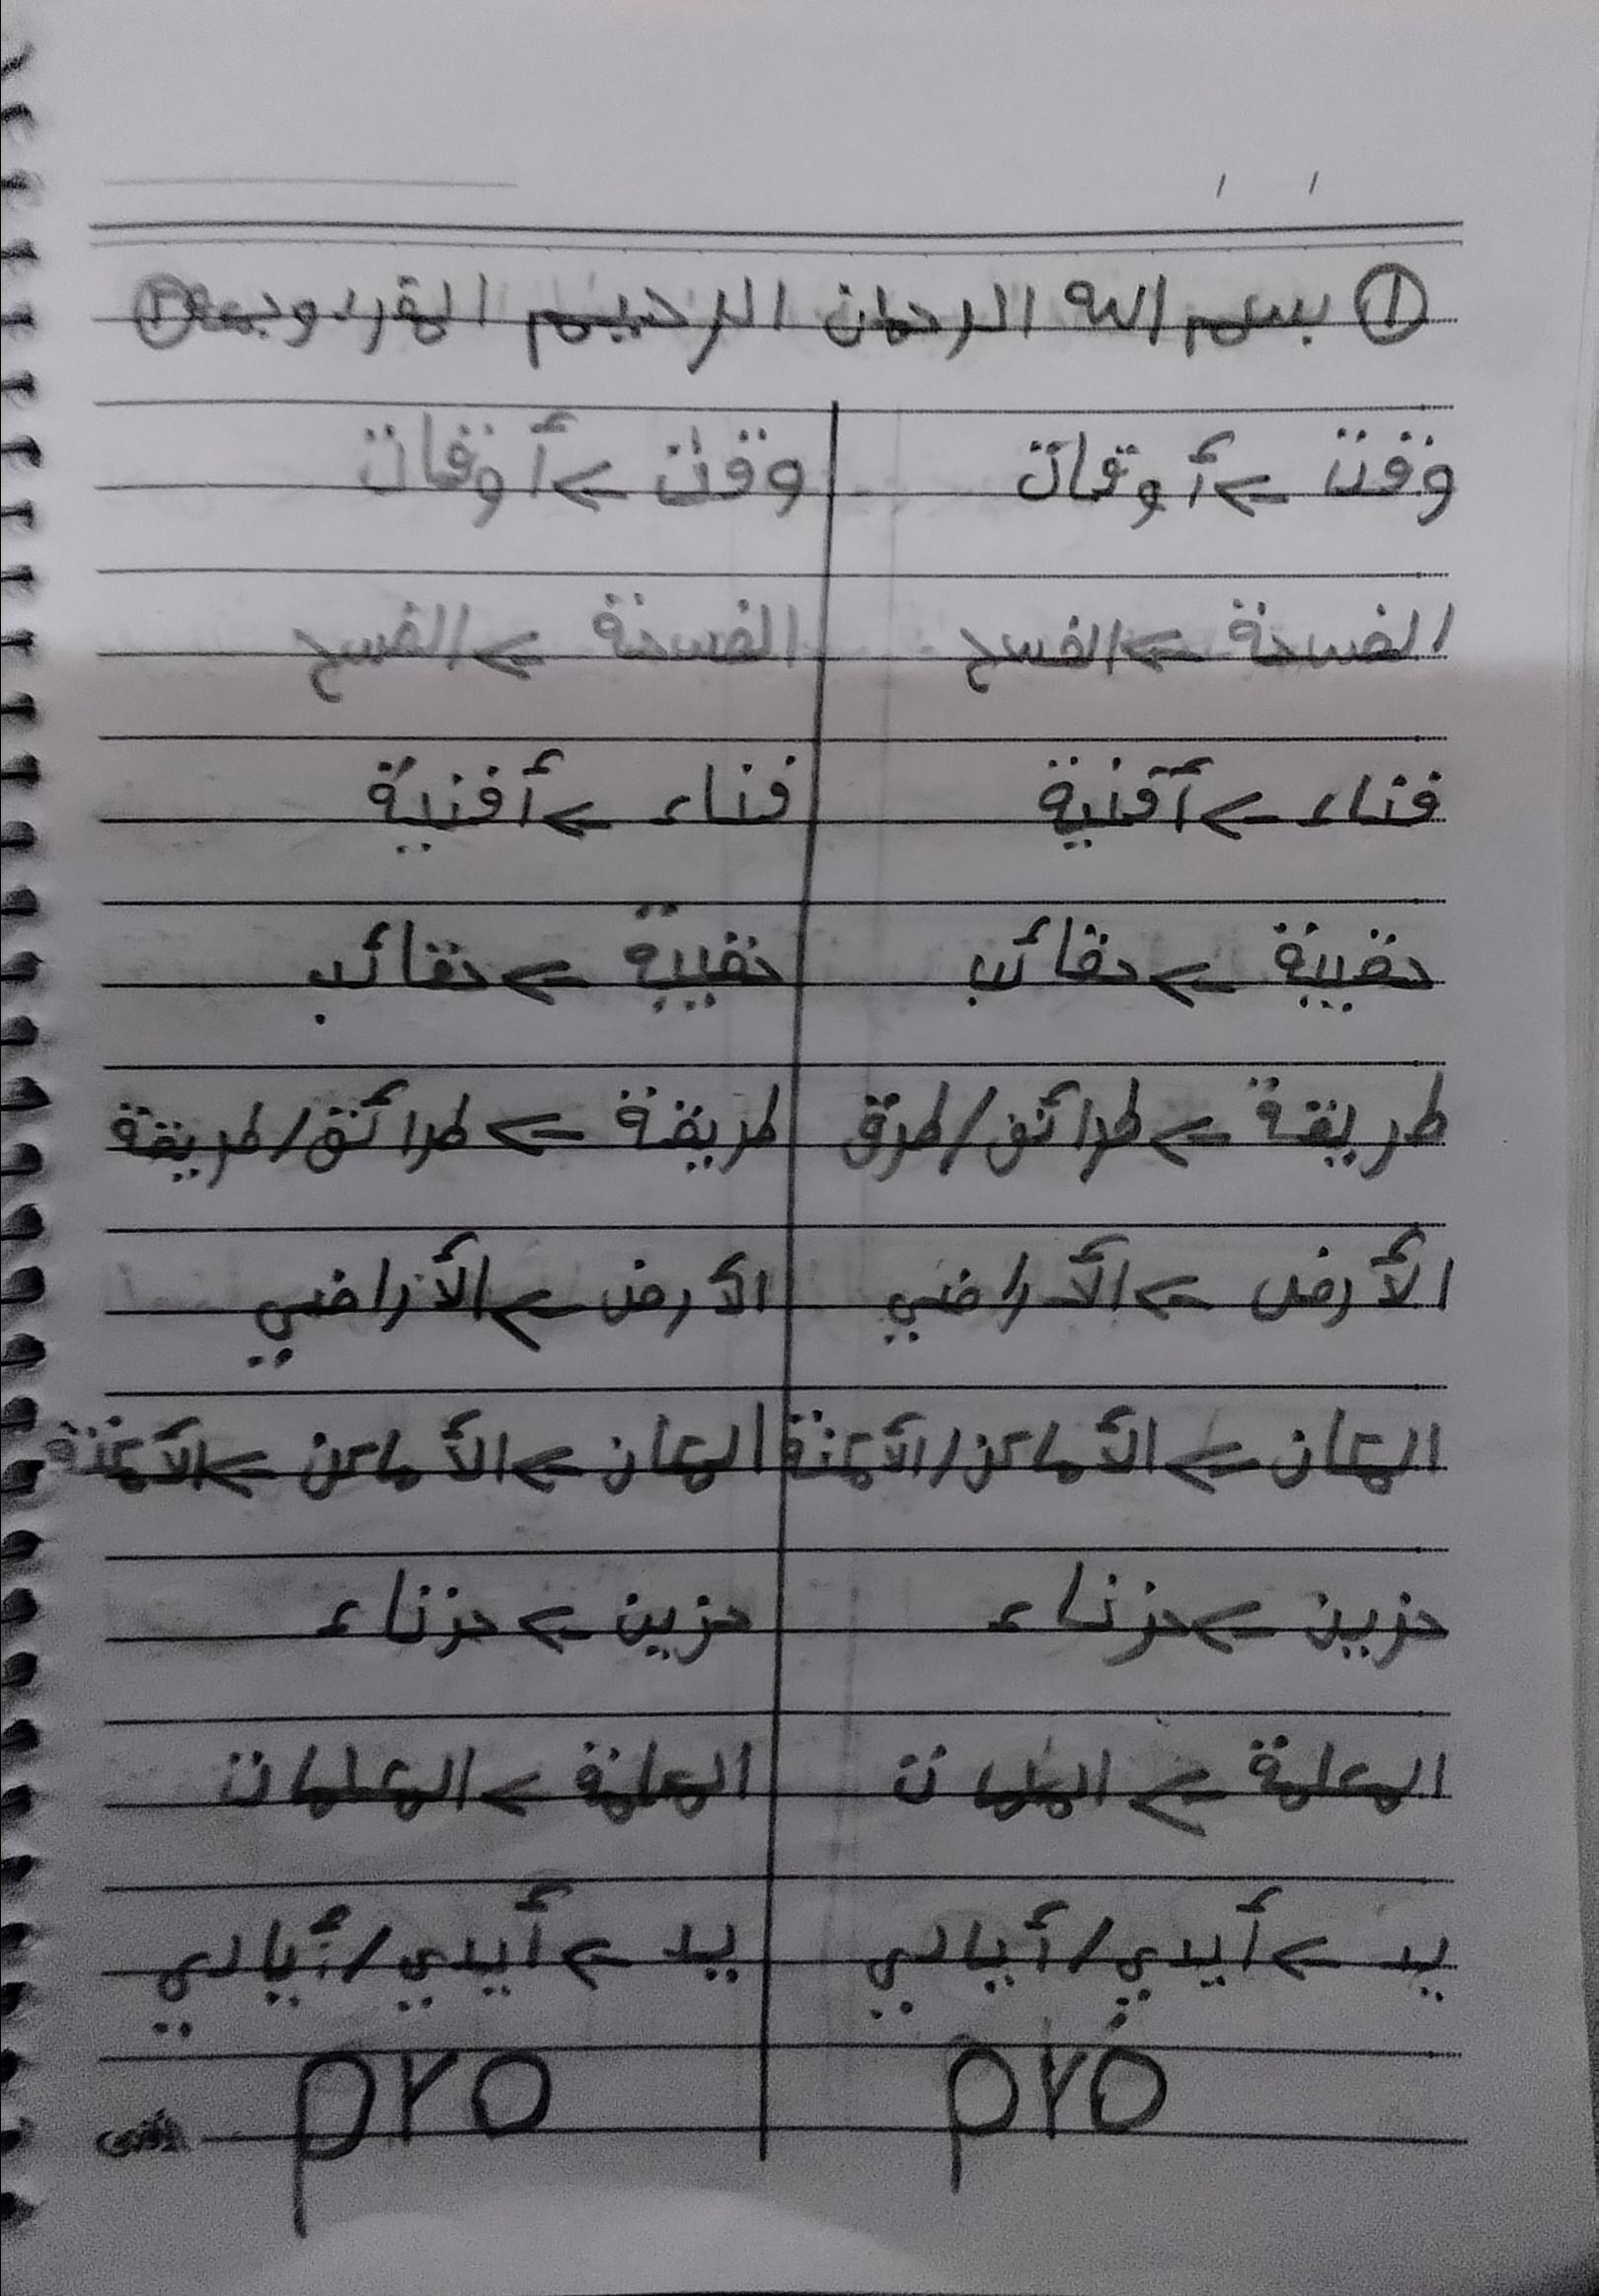 ① بسم الله الرحمان الرحيم
وقت ← أوقات | وقت ← أوقات
الفسحة ← الفسح | الفسحة ← الفسح
فناء ← أفنية | فناء ← أفنية
حقيبة ← حقائب | حقيبة ← حقائب
طريقة ← طرائق/طرق | طريقة ← طرائق/طريقة
الأرض ← الأراضي | الأرض ← الأراضي
المكان ← الأماكن/الأمكنة | المكان ← الأماكن ← الأمكنة
حزين ← حزناء | حزين ← حزناء
المعلمة ← المعلمات | المعلمة ← المعلمات
يد ← أيدي/أيادي | يد ← أيدي/أيادي